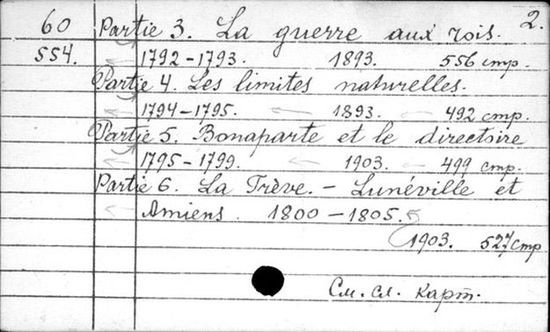 2.
60 Partie 3. La guerre aux rois.
554. 1792-1793. 1893. 556 стр.
Partie 4. Les limites naturelles.
1794-1795. 1893. 492 стр.
Partie 5. Bonaparte et le directoire
1795-1799. 1903. 499 стр.
Partie 6. La Trève. - Lunéville et
Amiens. 1800-1805.
1903. 527 стр
См. сл. карт.